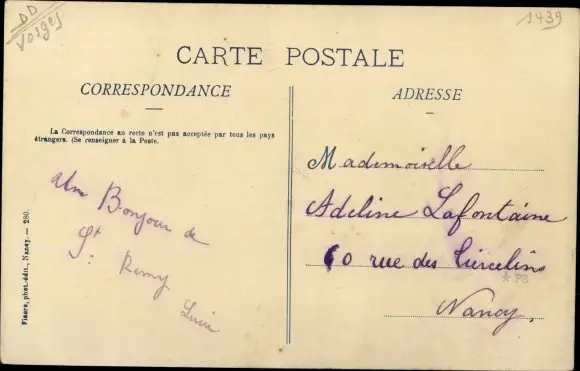 DD
Vosges
1439
CARTE POSTALE
CORRESPONDANCE
ADRESSE
La Correspondance au recto n'est pas acceptée par tous les pays
étrangers. (Se renseigner à la Poste.
Un Bonjour de
St Remy
Lucie
Mademoiselle
Adeline Lafontaine
60 rue des Tiercelins
Nancy.
phot.-édit., Nancy. — 280.